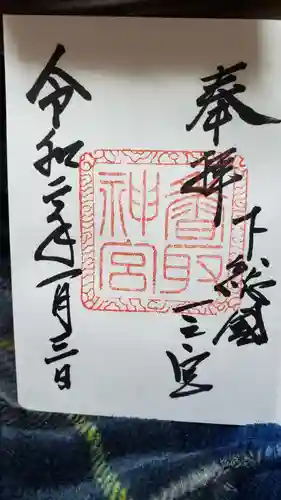 奉拝
下総国
一之宮
香取
神宮
令和二年一月三日